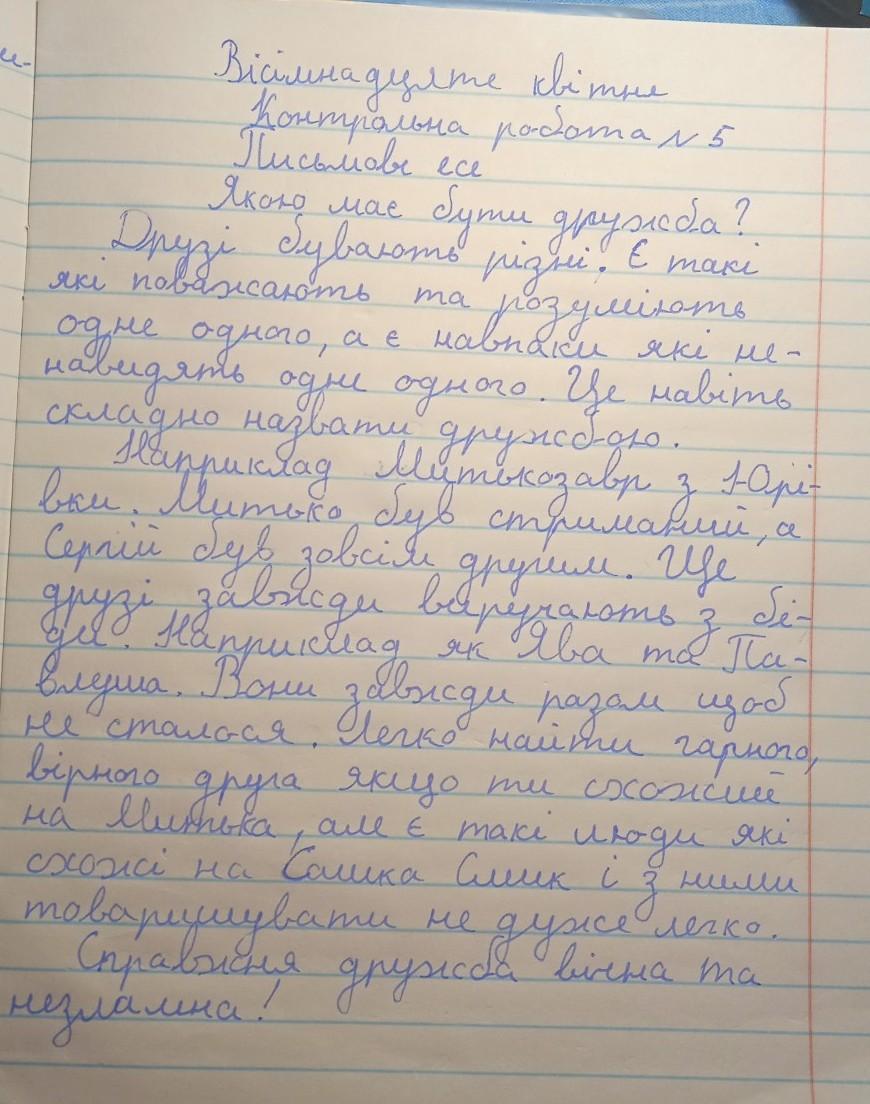 и-
Вісімнадцяте квітня
Контрольна робота № 5
Письмове есе
Якою має бути дружба?
Друзі бувають різні. Є такі
які поважають та розуміють
одне одного, а є навпаки які не-
навидять одне одного. Це навіть
складно назвати дружбою.
Наприклад Митькозавр з Юрі-
вки. Митько був стриманий, а
Сергій був зовсім другим. Ще
друзі завжди виручають з бі-
ди. Наприклад як Ява та Па-
влуша. Вони завжди разом щоб
не сталося. Легко найти гарного,
вірного друга якщо ти схожий
на Митька, але є такі люди які
схожі на Сашка Смик і з ними
товаришувати не дуже легко.
Справжня дружба вічна та
незламна!